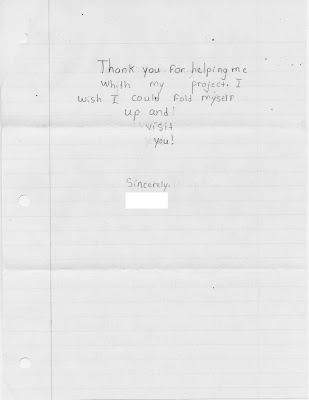 Thank you for helping me
whith my project. I
wish I could fold myself
up and
visit
you!
Sincerely,